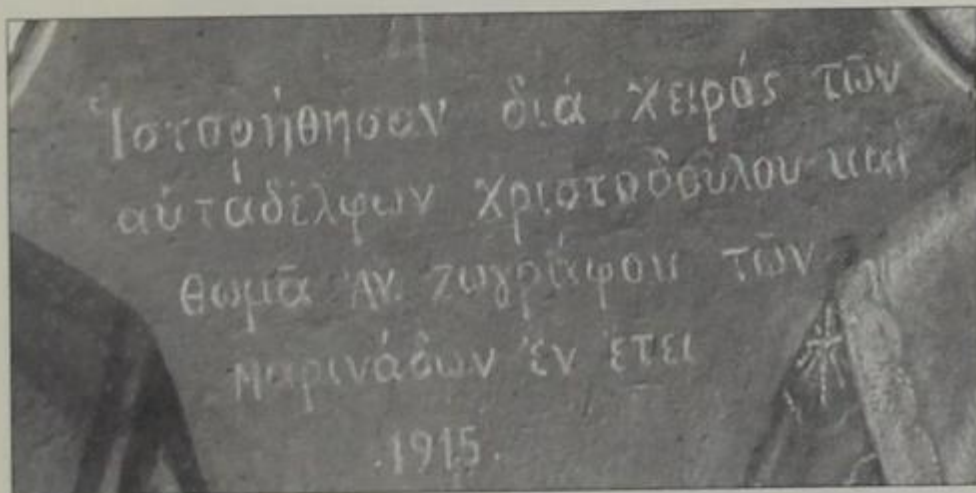 Ἱστορήθησαν διά χειρός τῶν
αὐταδέλφων Χριστοδούλου καί
Θωμᾶ Ἀν. Ζωγράφου τῶν
Μαρινάδων ἐν ἔτει
.1915.